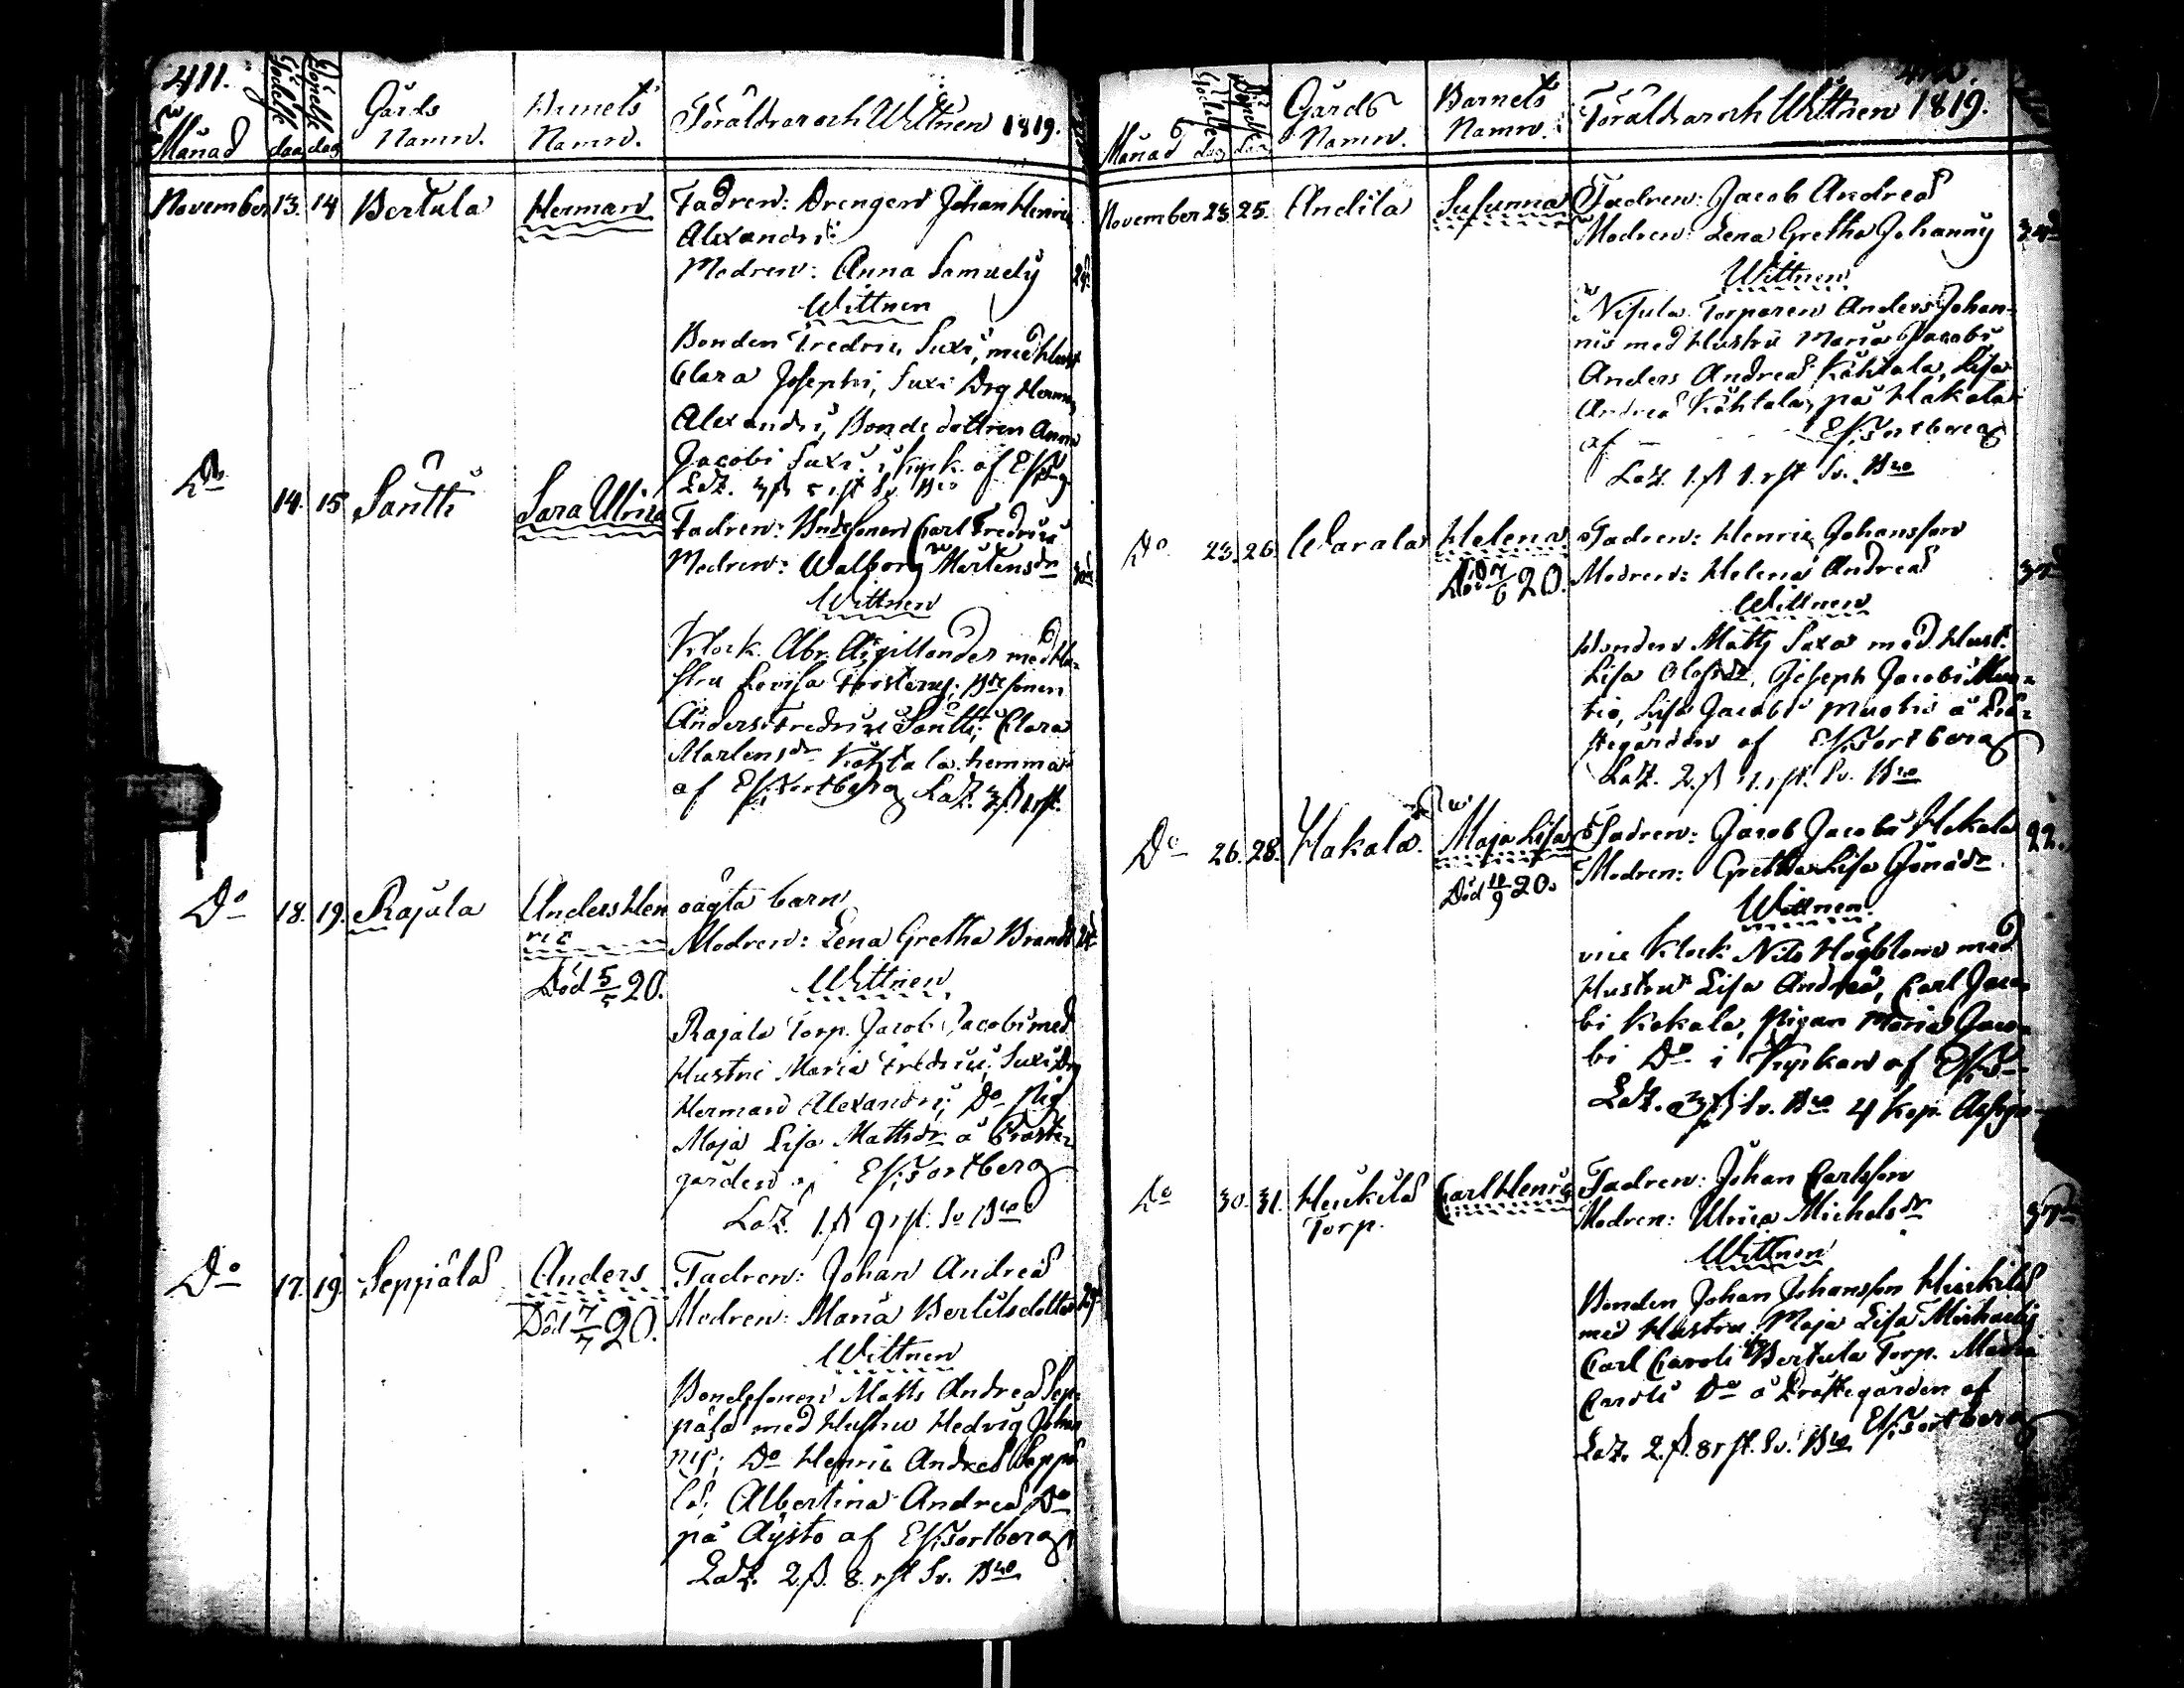 411.
Månad Födelse dag Döpelse dag Gårds Namn. Barnets Namn. Föräldrar och Wittnen 1819.
November 13. 14 Bertula Herman Fadren: Drengen Johan Henric
Alexandri
Modren: Anna Samuelis
Wittnen
Bonden Fredric Luxi, med Hust
Clara Josephi, Luxi Drg Herman
Alexandri, Bondedottren Anna
Jacobi Luxi. i Kyrk. af
Laz.
Do 14. 15 Santti Sara Ulrica
Fadren: Bndesonen Carl Fredrici
Modren: Walborg Mårtensdr
Wittnen
Klock. Abr. med Hu-
stru Lovisa Bdesonen
Anders Fredrici Santti; Clara
Martensdr Köhtala. hemma
af Es: Tortberg Laz.
Do 18. 19. Rajala Anders Hen oägta barn
ric Modren: Lena Gretha Brandt
Död 5/5 20. Wittnen
Rajala Torp. Jacob Jacobi med
Hustru Maria Fredrici; Luxi Drg
Herman Alexandri; Do Pig
Maja Lisa Mattsdr å Prostes
gården af Es: Tortberg
Laz. 1. ß 9 rst. Sv. Bco
Do 17. 19. Seppälä Anders Fadren: Johan Andreæ
Död 7/7 20. Modren: Maria Bertilsdotter
Wittnen
Bondesonen Matts Andreæ Sep-
pälä med Hustru Hedvig Johan
nis; Do Henric Andreæ Seppä
lä; Albertina Andreæ Do
på Äystö af Es: Tortberg
Laz. 2. ß. 8. rst Sv. Bco
Månad Födelse dag Döpelse dag Gårds Namn. Barnets Namn. Föräldrar och Wittnen 1819.
November 23 25. Andila Susanna Fadren: Jacob Andreæ
Modren: Lena Gretha Johannis
Wittnen
Nisula Torparen Anders Johan-
nis med Hustru Maria Jacobi
Anders Andreæ Köhtala, Lisa
Andreæ Köhtala, på Hakala
af Es: Tortberg
Laz. 1. ß 1. rst Sv. Bco
Do 23. 26. Warala Helena Fadren: Henric Johansson
Död 20. Modren: Helena Andreæ
Wittnen
Bonden Matts Saxa med Hust.
Lisa Olofsdr, Joseph Jacobi Muo-
tio, Lisa Jacobi Muotio å Prä-
stegården af Es: Tortberg
Laz. 2. ß 11. rst. Sv. Bco
Do 26. 28. Hakala. Maja Lisa Fadren: Jacob Jacobi Hakala 22.
Död 18/9 20. Modren: Gretha Lisa
Wittnen.
vice Klock Nils Högblom med
Hustru Lisa Andreæ, Carl Jaco-
bi Kakala, Pigan Maria Jaco-
bi Do i Kyrkan af
Laz. 3 ß Sv. Bco 4 Kop. Assign
Do 30. 31. Heickilä Carl Henric Fadren: Johan Carlsson
Torp. Modren: Ulrica Michelsdr
Wittnen
Bonden Johan Johansson Heickilä
med Hustru Maja Lisa Michaelis
Carl Caroli Bertula Torp. Maria
Caroli Do å Prästegården af
Laz. 2. ß. 8 rst. Sv. Bco Es: Tortberg